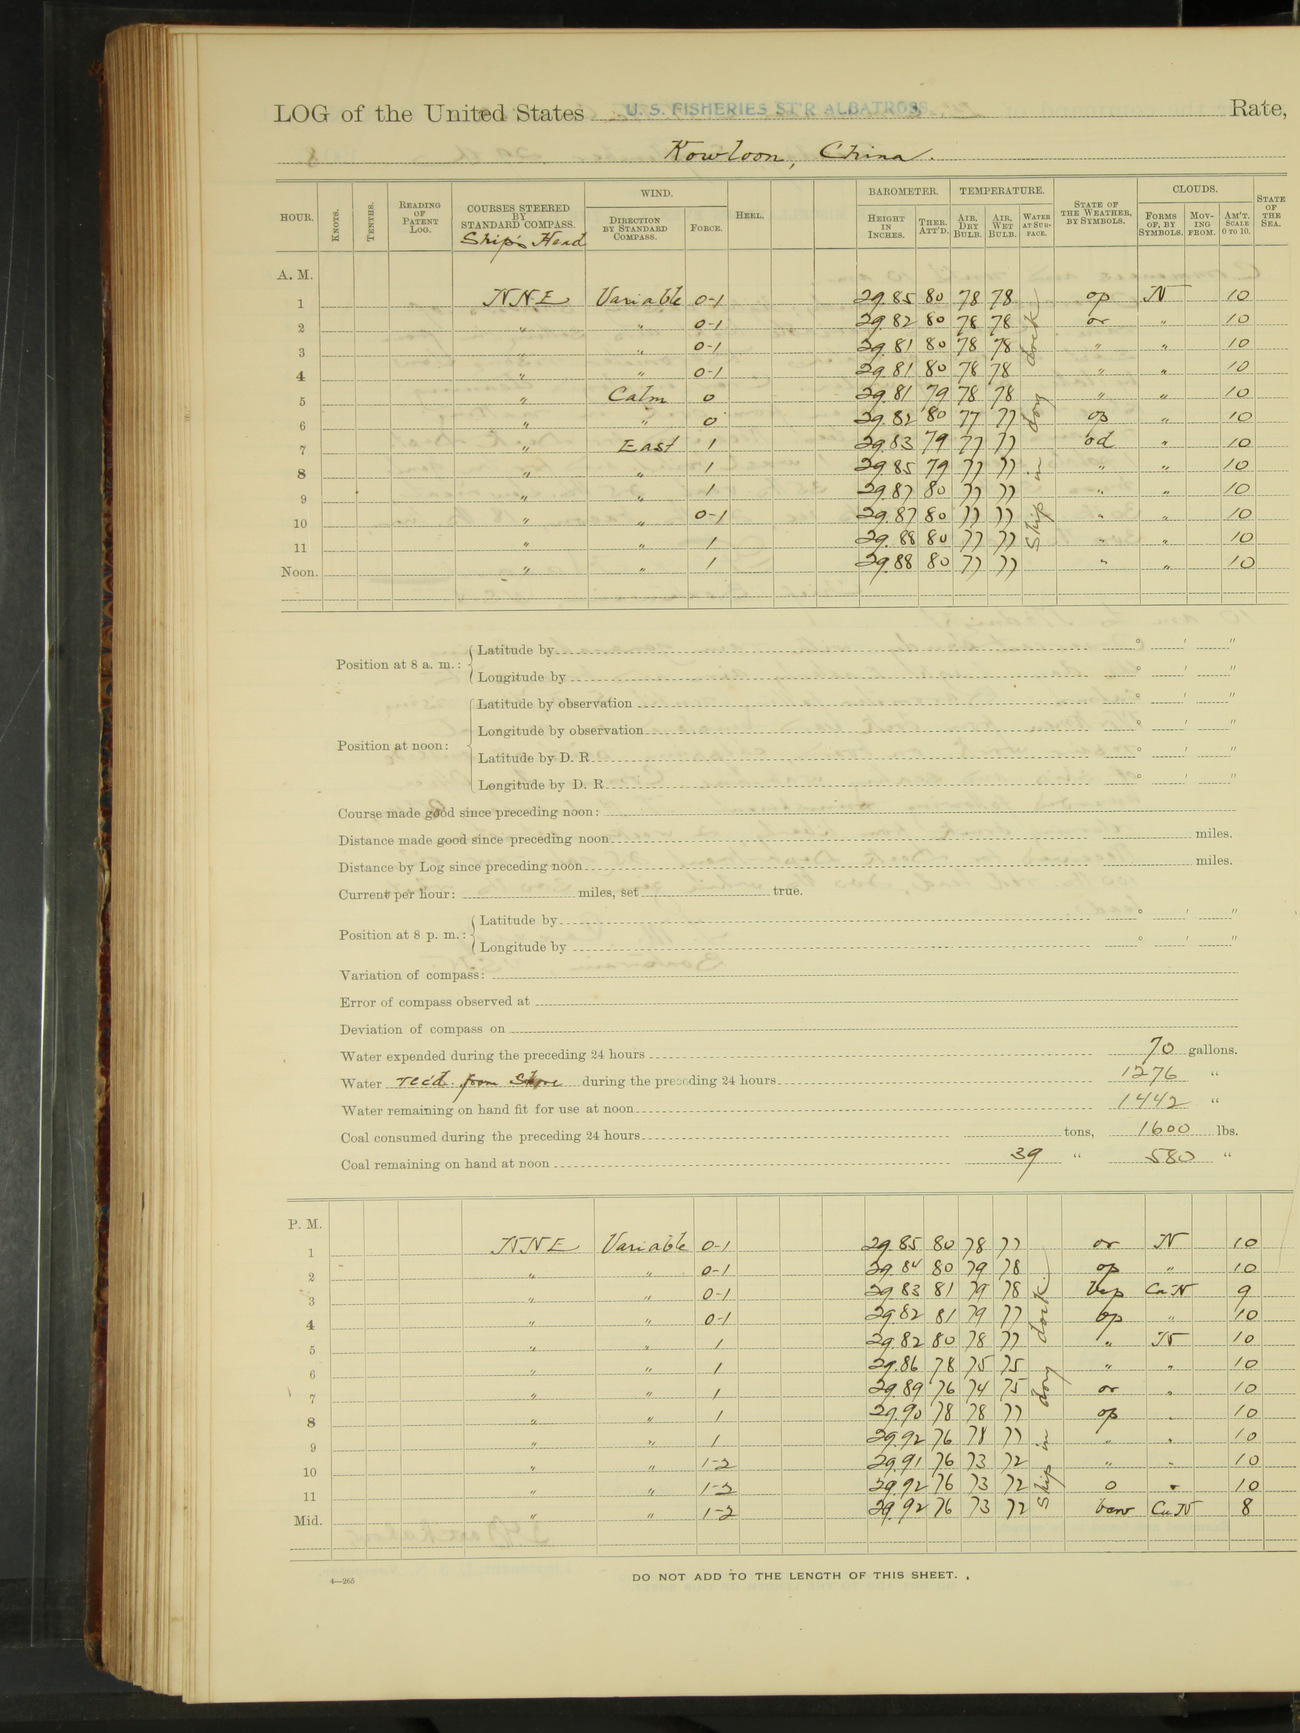 LOG of the United States U. S. FISHERIES ST'R ALBATROSS. Rate,
Kowloon, China.
HOUR. KNOTS. TENTHS. READING OF PATENT LOG. COURSES STEERED BY STANDARD COMPASS. Ship's Head WIND. DIRECTION BY STANDARD COMPASS. FORCE. HEEL. BAROMETER. HEIGHT IN INCHES. THER. ATT'D. TEMPERATURE. AIR, DRY BULB. AIR, WET BULB. WATER AT SURFACE. STATE OF THE WEATHER, BY SYMBOLS. CLOUDS. FORMS OF, BY SYMBOLS. MOVING FROM. AM'T. SCALE 0 TO 10. STATE OF THE SEA.
A. M.
1 NNE Variable 0-1 29.85 80 78 78 op N 10
2 " " 0-1 29.82 80 78 78 or " 10
3 " " 0-1 29.81 80 78 78 " " 10
4 " " 0-1 29.81 80 78 78 " " 10
5 " Calm 0 29.81 79 78 78 " " 10
6 " " 0 29.82 80 77 77 op " 10
7 " East 1 29.83 79 77 77 od " 10
8 " " 1 29.85 79 77 77 " " 10
9 " " 1 29.87 80 77 77 " " 10
10 " " 0-1 29.87 80 77 77 " " 10
11 " " 1 29.88 80 77 77 " " 10
Noon. " " 1 29.88 80 77 77 " " 10
Ship in dry dock
Position at 8 a. m.: Latitude by ° ' "
Longitude by ° ' "
Position at noon: Latitude by observation ° ' "
Longitude by observation ° ' "
Latitude by D. R. ° ' "
Longitude by D. R. ° ' "
Course made good since preceding noon:
Distance made good since preceding noon miles.
Distance by Log since preceding noon miles.
Current per hour: miles, set true.
Position at 8 p. m.: Latitude by ° ' "
Longitude by ° ' "
Variation of compass:
Error of compass observed at
Deviation of compass on
Water expended during the preceding 24 hours 70 gallons.
Water rec'd. from Shore during the preceding 24 hours 1276 "
Water remaining on hand fit for use at noon 1442 "
Coal consumed during the preceding 24 hours tons, 1600 lbs.
Coal remaining on hand at noon 39 " 580 "
P. M.
1 NNE Variable 0-1 29.85 80 78 77 or N 10
2 " " 0-1 29.84 80 79 78 op " 10
3 " " 0-1 29.83 81 79 78 bcp CuN 9
4 " " 0-1 29.82 81 79 77 op " 10
5 " " 1 29.82 80 78 77 " N 10
6 " " 1 29.86 78 75 75 " " 10
7 " " 1 29.89 76 74 75 or " 10
8 " " 1 29.90 78 78 77 op " 10
9 " " 1 29.92 76 78 77 " " 10
10 " " 1-2 29.91 76 73 72 " " 10
11 " " 1-2 29.92 76 73 72 o " 10
Mid. " " 1-2 29.92 76 73 72 CuN 8
Ship in dry dock.
4—265
DO NOT ADD TO THE LENGTH OF THIS SHEET.